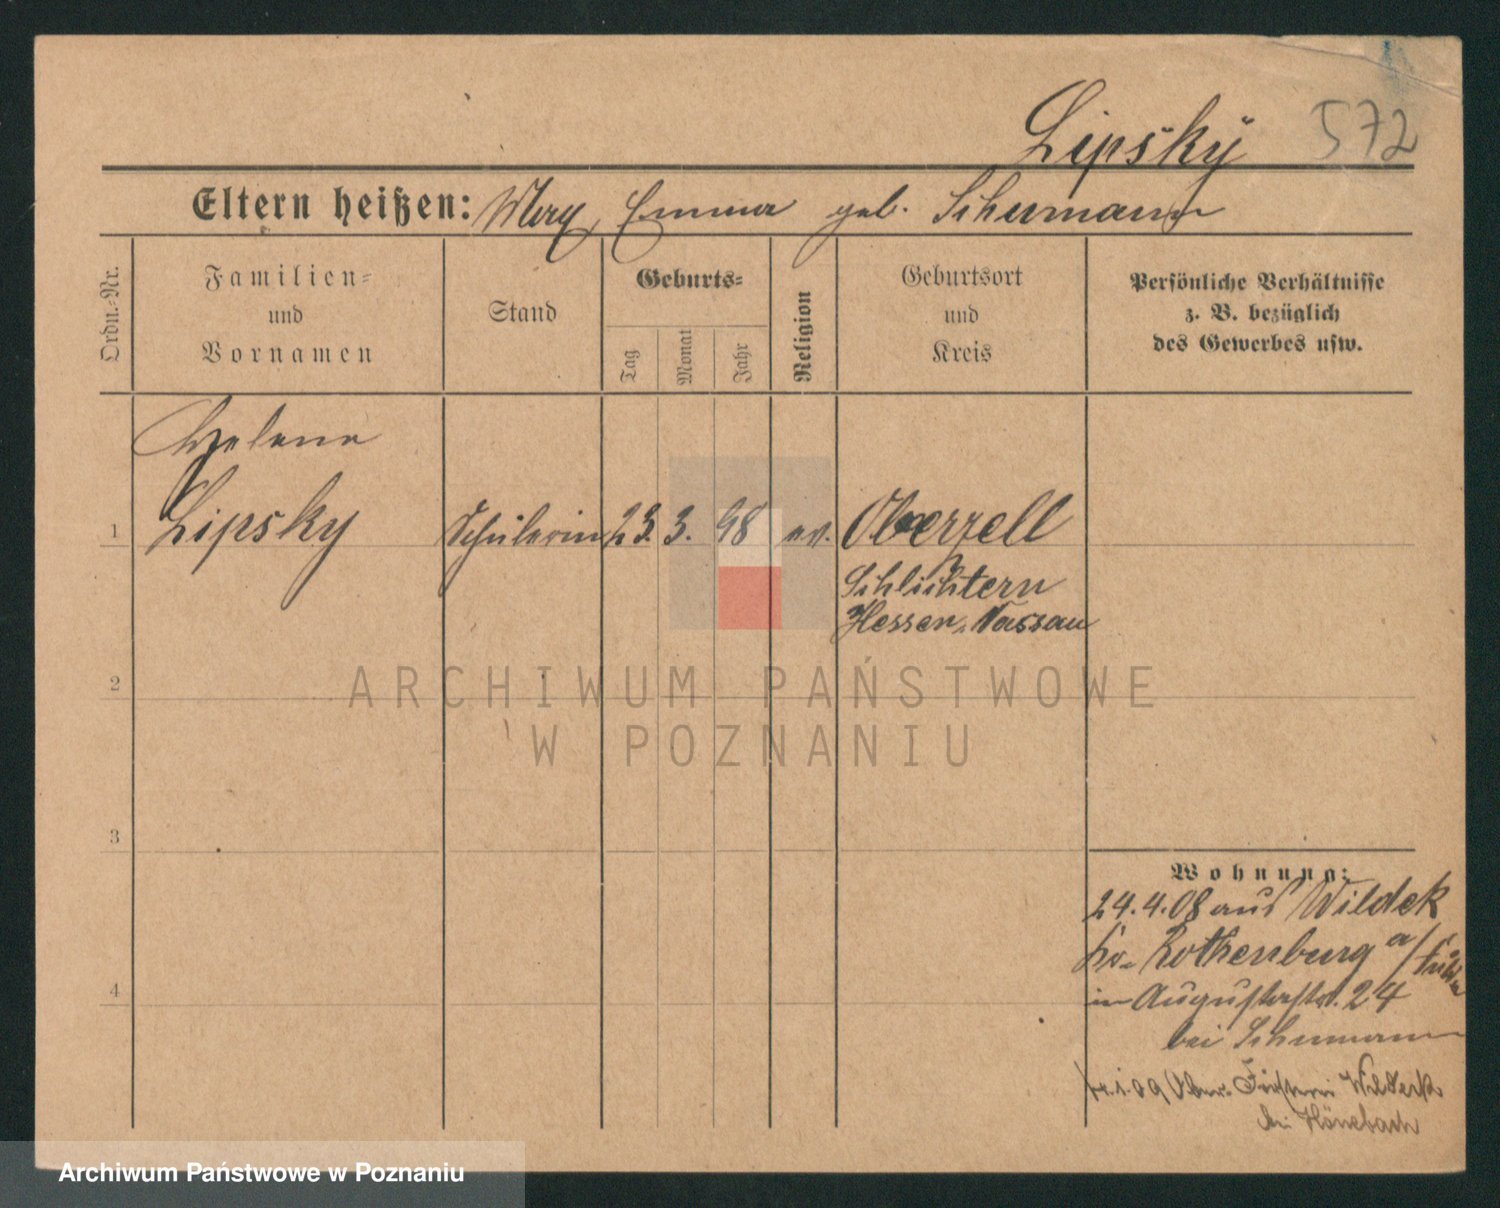 Lipsky 572
Eltern heißen: Max, Emma geb. Schumann
Ordn.-Nr.
Familien-
und
Vornamen
Stand
Geburts-
Tag
Monat
Jahr
Religion
Geburtsort
und
Kreis
Persönliche Verhältnisse
z. B. bezüglich
des Gewerbes usw.
Helene
1 Lipsky Schülerin 23. 3. 98 ev. Oberzell
Schlüchtern
Hessen-Nassau
2
3
4
Wohnung:
24.4.08 aus Wildek
Kr. Rothenburg a/Fulda
in Augustastr. 24
bei Schumann
1.09 Ober-Försterei Wildeck
bei Hönebach
ARCHIWUM PAŃSTWOWE
W POZNANIU
Archiwum Państwowe w Poznaniu